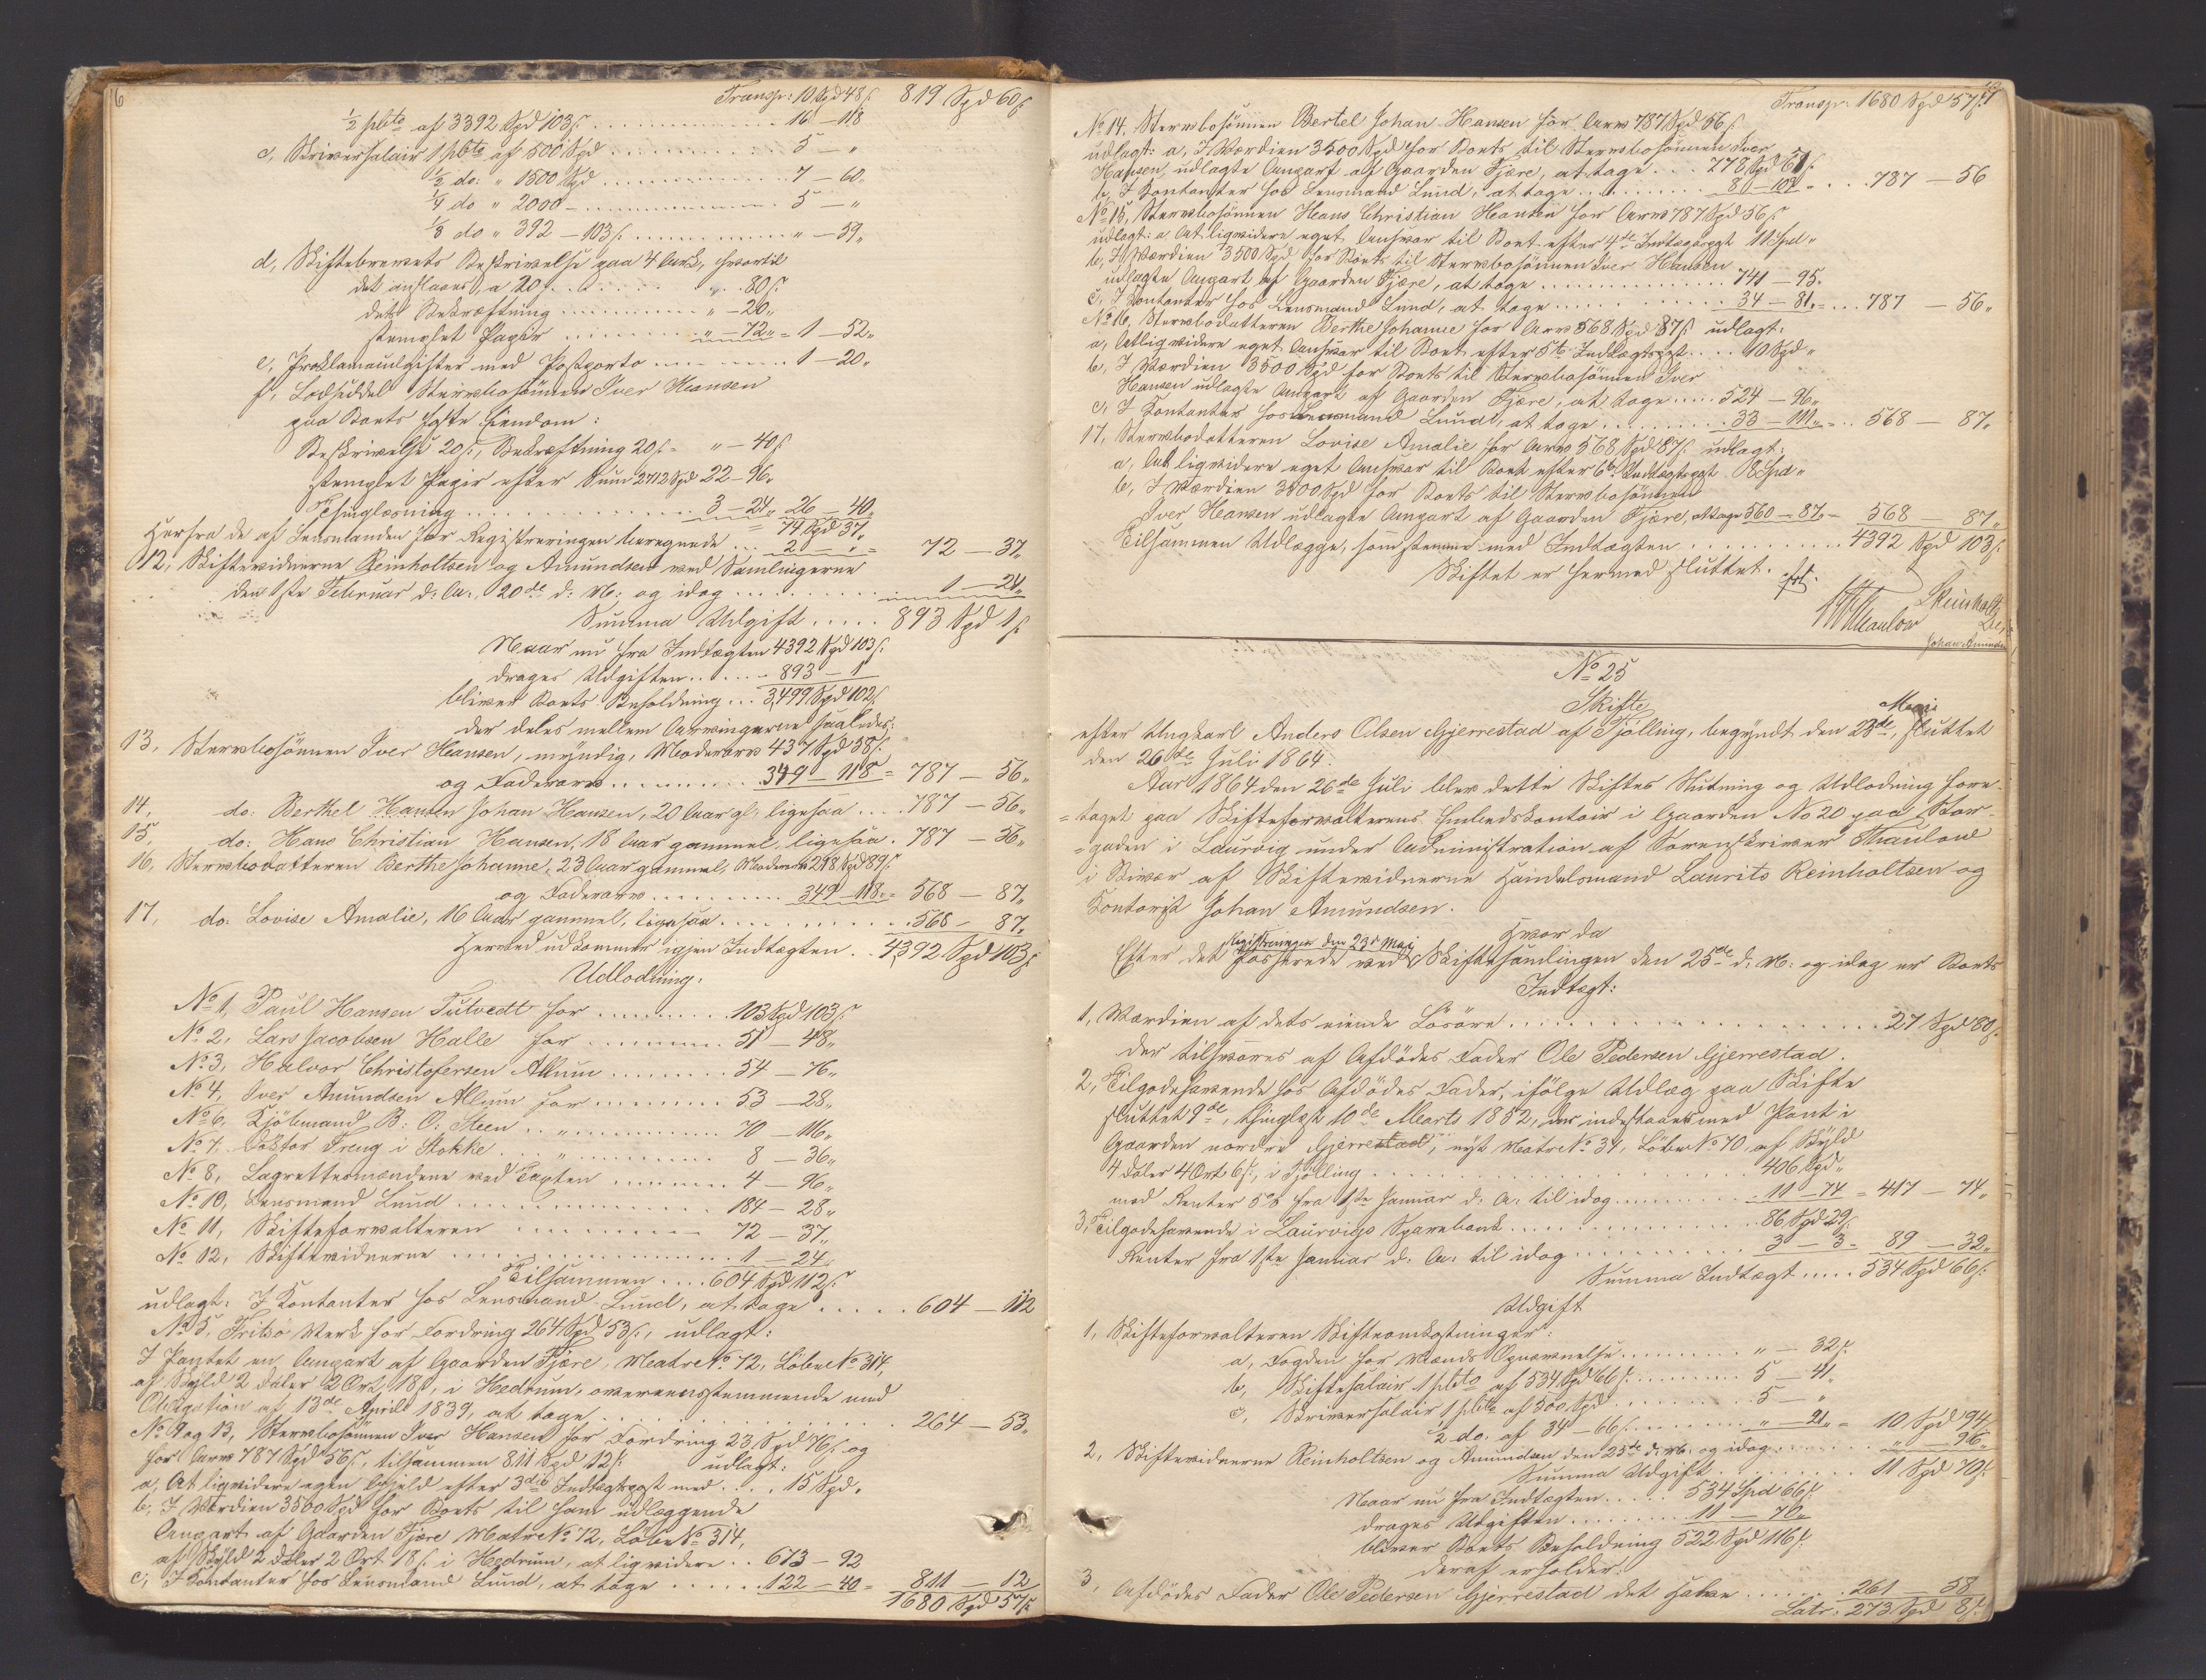 6
Transp: 10 Spd 48 ß 819 Spd 60 ß
½ pCto af 3392 Spd 103 ß ........ 16 – 118
c, Skriversalair 1 pCto af 500 Spd ........ 5 – "
½ do: " 1500 Spd ........ 7 – 60"
¼ do " 2000 – ........ 5 – "
⅛ do " 392 – 103 ß ........ " – 59"
d, Skiftebrevets Beskrivelse paa 4 Ark, hvortil
det anslaaes, a 20 ß ........ " – 80 ß
dets Bekræftning ........ " – 20"
stemplet Papir ........ " – 72" = 1 – 52"
e, Proklamaudgifter med Postporto ........ 1 – 20"
f, Lodseddel Stervbosønnen Iver Hansen
paa Boets faste Eiendom:
Beskrivelse 20 ß, Bekræftning 20 ß = " – 40 ß
stemplet Papir efter Sum 2712 Spd 22 – 96"
Thinglæsning ........ 3 – 24" 26 – 40"
= 74 Spd 37"
Herfra de af Lensmanden for Registreringen beregnede ... 2 – " = 72 – 37"
12, Skiftevidnerne Reinholtsen og Amundsen ved Samlingerne
den 1ste Februar d: A:, 20de d: M: og idag ........ 1 – 24"
Summa Udgift ..... 893 Spd 1 ß
Naar nu fra Indtægten 4392 Spd 103 ß
drages Udgiften ...... 893 – 1
bliver Boets Beholdning ... 3,499 Spd 102 ß
der deles mellem Arvingerne saaledes:
13, Stervbosønnen Iver Hansen, myndig, Moderarv 437 Spd 58 ß
og Faderarv ........ 349 – 118 = 787 – 56"
14, do: Berthel Hansen Johan Hansen, 20 Aar gl, ligesaa .... 787 – 56"
15, do: Hans Christian Hansen, 18 Aar gammel, ligesaa . 787 – 56"
16, Stervbodatteren Berthe Johanne, 23 Aar gammel, Moderarv 218 Spd 89 ß
og Faderarv ........ 349 – 118 = 568 – 87"
17, do: Lovise Amalie, 16 Aar gammel, ligesaa ........ 568 – 87"
Hermed udkommer igjen Indtægten .. 4,392 Spd 103 ß
Udlodning:
No 1, Paul Hansen Tutvedt for ........ 103 Spd 103 ß
No 2, Lars Jacobsen Halle for ........ 51 – 48"
No 3, Halvor Christofersen Allum ........ 54 – 76"
No 4, Iver Amundsen Allum for ........ 53 – 28"
No 6, Kjöbmand B: O: Steen .. " ........ 70 – 116"
No 7, Doktor Treug i Stokke ... " ........ 8 – 36"
No 8, Lagrettesmændene ved Taxten ........ 4 – 96"
No 10, Lensmand Lund ........ 184 – 28"
No 11, Skifteforvalteren ........ 72 – 37"
No 12, Skiftevidnerne ........ 1 – 24"
Tilsammen .... 604 Spd 112 ß
udlagt: I Kontanter hos Lensmand Lund, at tage ..... 604 – 112
No 5, Fritsø Værk for Fordring 264 Spd 53 ß, udlagt:
I Pantet en Anpart af Gaarden Fjære, Matre No 72, Løbe No 314,
af Skyld 2 Daler 2 Ort 18 ß, i Hedrum, overensstemmende med
Obligation af 13de April 1839, at tage ........ 264 – 53"
No 9 og 13, Stervbosønnen Iver Hansen for Fordring 23 Spd 76 ß og
for Arv 787 Spd 56 ß, tilsammen 811 Spd 12 ß udlagt:
a, At liqvidere egen Gjeld efter 3die Indtægtspost med .... 15 Spd "
b, I Værdien 3500 Spd for Boets til ham udlæggende
Anpart af Gaarden Fjære Matre No 72, Løbe No 314,
af Skyld 2 Daler 2 Ort 18 ß i Hedrum, at liqvidere .. 673 – 92
c, I Kontanter hos Lensmand Lund, at tage ...... 122 – 40 = 811 – 12
1680 Spd 57 ß
Transp: 1680 Spd 57 ß
No 14. Stervbosønnen Bertel Johan Hansen for Arv 787 Spd 56 ß
udlagt: a, I Værdien 3500 Spd for Boets til Stervbosønnen Iver
Hansen, udlagte Anpart af Gaarden Fjære, at tage ... 778 Spd 67 ß
b, I Kontanter hos Lensmand Lund, at tage ........ 8 – 109 .... 787 – 56
No 15, Stervbosønnen Hans Christian Hansen for Arv 787 Spd 56 ß
udlagt: a, At liqvidere eget Ansvar til Boet efter 4de Indtægtspost 11 Spd "
b, I Værdien 3500 Spd for Boets til Stervbosønnen Iver Hansen
udlagte Anpart af Gaarden Fjære, at tage ........ 741 – 95.
c, I Kontanter hos Lensmand Lund, at tage ........ 34 – 81 = ... 787 – 56"
No 16, Stervbodatteren Berthe Johanne for Arv 568 Spd 87 ß udlagt:
a, At liqvidere eget Ansvar til Boet efter 5te Indtægtspost .... 10 Spd "
b, I Værdien 3500 Spd for Boets til Stervbosønnen Iver
Hansen udlagte Anpart af Gaarden Fjære, at tage ..... 524 – 96"
c, I Kontanter hos Lensmand Lund, at tage ........ 33 – 111" = .. 568 – 87"
17, Stervbodatteren Lovise Amalie for Arv 568 Spd 87 ß udlagt:
a, At liqvidere eget Ansvar til Boet efter 6te Indtægtspost 8 Spd "
b, I Værdien 3500 Spd for Boets til Stervbosønnen
Iver Hansen udlagte Anpart af Gaarden Fjære, at tage 560 – 87 = 568 – 87"
Tilsammen Udlægge, som stemme med Indtægten ........ 4392 Spd 103 ß
Skiftet er hermed sluttet.
Thaulow
L Reinholtsen
Johan Amundsen
No 25
Skifte
Mai
efter Ungkarl Anders Olsen Gjerrestad af Tjølling, begyndt den 23de, sluttet
den 26de Juli 1864.
Aar 1864 den 26de Juli blev dette Skiftes Slutning og Udlodning fore-
=taget paa Skifteforvalterens Embedskontoir i Gaarden No 20 paa Stor-
=gaden i Laurvig under Administration af Sorenskriver Thaulow
i Nærvær af Skiftevidnerne Handelsmand Laurits Reinholtsen og
Kontorist Johan Amundsen.
Hvor da
Registreringen den 23de Mai
Efter det passerede ved Skiftesamlingen den 25de d: M: og idag er Boets
Indtægt:
1, Værdien af dets eiende Løsøre ........ 27 Spd 80 ß
der tilsvares af Afdødes Fader Ole Pedersen Gjerrestad.
2, Tilgodehavende hos Afdødes Fader, ifølge Udlæg paa Skifte
sluttet 9de, thinglæst 10de Marts 1852, der indestaaer med Pant i
Gaarden nordre Gjerrestad, nyt Matre No 34, Løbe No 70, af Skyld
4 Daler 4 Ort 6 ß, i Tjølling ........ 406 Spd "
med Renter 5 % fra 1ste Januar d: A: til idag ........ 11 – 74 = 417 – 74"
3, Tilgodehavende i Laurvigs Sparebank ........ 86 Spd 29 ß
Renter fra 1ste Januar d: A: til idag ........ 3 – 3 = 89 – 32"
Summa Indtægt ..... 534 Spd 66 ß
Udgift
1, Skifteforvalteren Skifteomkostninger:
a, Fogden for Mænds Opnævnelse ........ " – 32 ß
b, Skiftesalair 1 pCto af 534 Spd 66 ß ........ 5 – 41"
c, Skriversalair 1 pCto af 500 Spd ........ 5 – "
½ do. af 34 – 66 ß ........ " – 21" = 10 Spd 94
2, Skiftevidnerne Reinholtsen og Amundsen den 25de d: M: og idag ........ " – 96"
Summa Udgift ........ 11 Spd 70 ß
Naar nu fra Indtægten ..... 534 Spd 66 ß
drages Udgiften ........ 11 – 70"
bliver Boets Beholdning 522 Spd 116 ß
deraf erholder:
3, Afdødes Fader Ole Pedersen Gjerrestad det Halve ........ 261 – 58
Latr: 273 Spd 8 ß